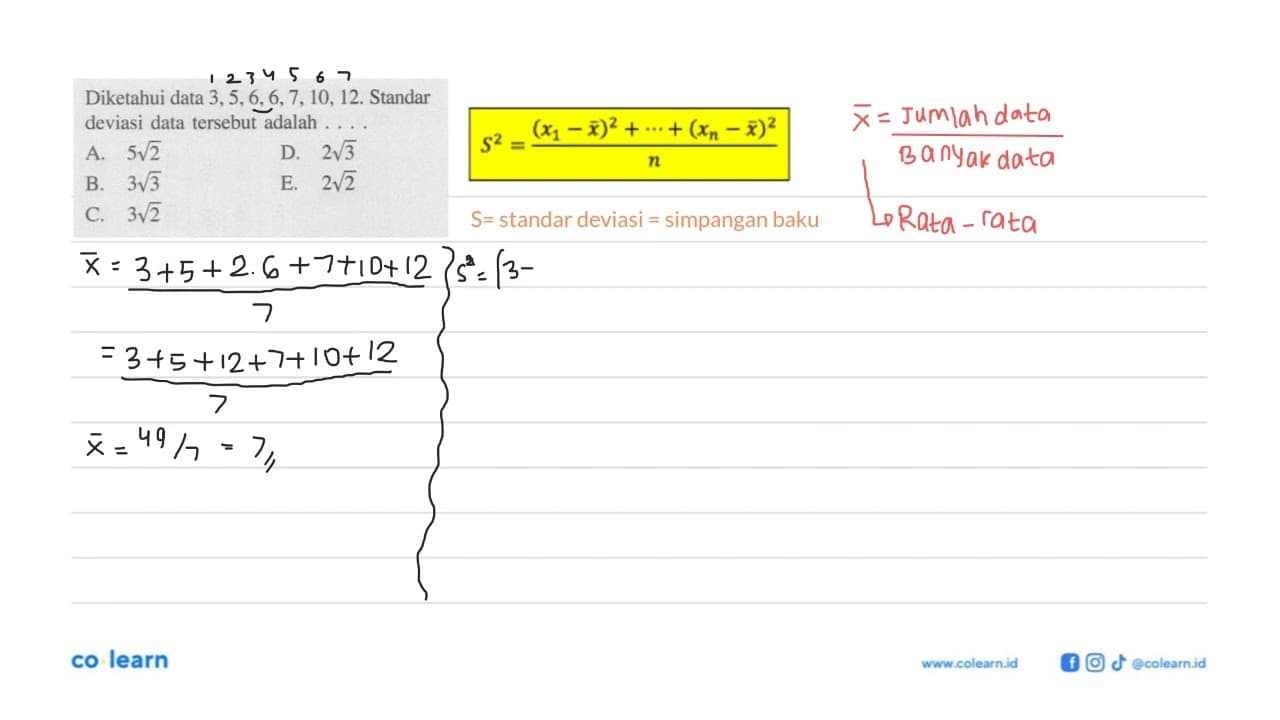 1 2 3 4 5 6 7
Diketahui data 3, 5, 6, 6, 7, 10, 12. Standar
deviasi data tersebut adalah . . . .
A. 5√2 D. 2√3
B. 3√3 E. 2√2
C. 3√2
S² = (x₁ − x̄)² + ⋯ + (xₙ − x̄)² / n
S= standar deviasi = simpangan baku
x̄ = Jumlah data
Banyak data
Rata-rata
x̄ = 3+5+2.6+7+10+12
7
= 3+5+12+7+10+12
7
x̄ = 49/7 = 7
S² = (3-
co learn
www.colearn.id
@colearn.id